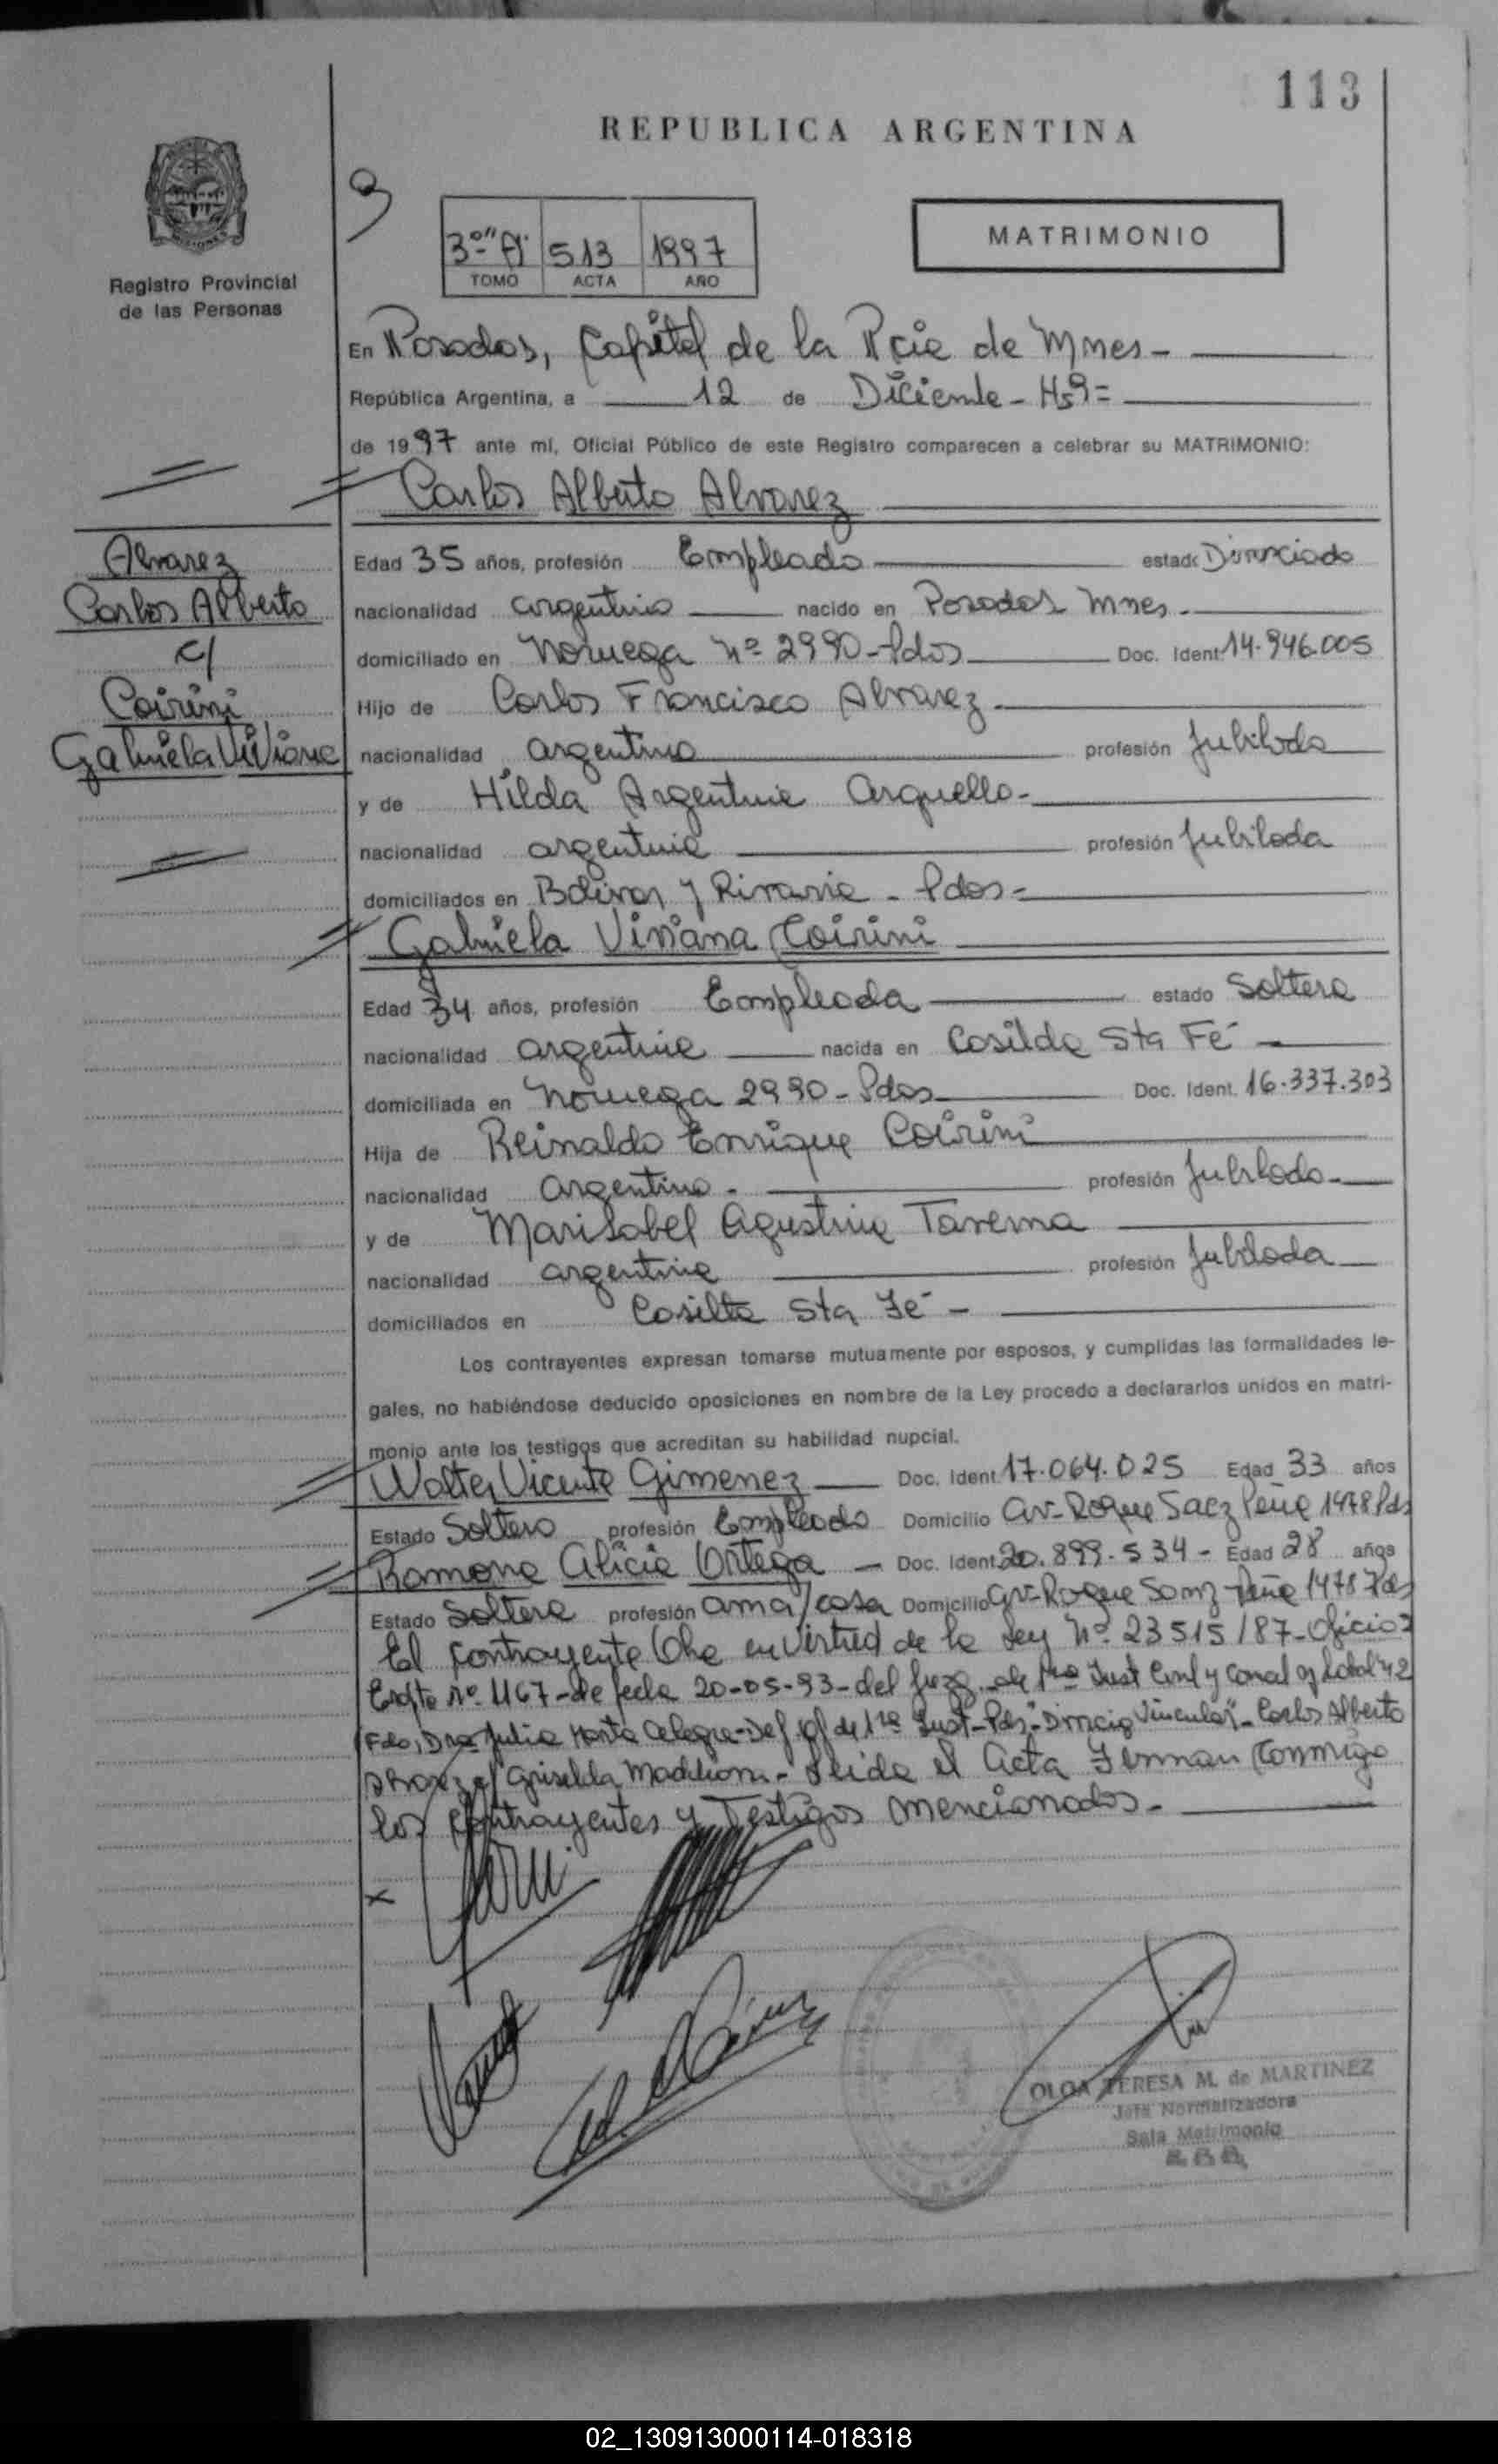 113
REPUBLICA ARGENTINA
Registro Provincial
de las Personas
3º "A" 513 1997
TOMO ACTA AÑO
MATRIMONIO
En Posadas, Capital de la Pcia de Mnes -
República Argentina, a 12 de Diciembre - Hs 9 =
de 1997 ante mí, Oficial Público de este Registro comparecen a celebrar su MATRIMONIO:
Carlos Alberto Alvarez
Alvarez
Carlos Alberto
c/
Coirini
Gabriela Viviana
Edad 35 años, profesión Empleado estado Divorciado
nacionalidad argentino nacido en Posadas Mnes -
domiciliado en Noruega nº 2990 - Pdas Doc. Ident. 14.946.005
Hijo de Carlos Francisco Alvarez -
nacionalidad argentino profesión Jubilado
y de Hilda Argentina Arguello -
nacionalidad argentina profesión Jubilada
domiciliados en Bolivar y - Pdas -
Gabriela Viviana Coirini
Edad 34 años, profesión Empleada estado Soltera
nacionalidad argentina nacida en Casilda Sta Fé -
domiciliada en Noruega 2990 - Pdas Doc. Ident. 16.337.303
Hija de Reinaldo Enrique Coirini
nacionalidad argentino - profesión Jubilado -
y de Marisabel Agustina Taverna
nacionalidad argentina profesión Jubilada
domiciliados en Casilda Sta Fé -
Los contrayentes expresan tomarse mutuamente por esposos, y cumplidas las formalidades le-
gales, no habiéndose deducido oposiciones en nombre de la Ley procedo a declararlos unidos en matri-
monio ante los testigos que acreditan su habilidad nupcial.
Walter Vicente Gimenez Doc. Ident. 17.064.025 Edad 33 años
Estado Soltero profesión Empleado Domicilio Av - Roque Saez Peña 1478 Pds
Ramona Alicia Ortega - Doc. Ident. 20.899.534 - Edad 28 años
Estado Soltera profesión ama/casa Domicilio Av - Roque Saenz Peña 1478 Pds
El contrayente en virtud de la Ley nº 23515/87 - Oficio
Expte nº 1167 - de fecha 20-05-93 - del Juzg. de 1ra Inst Civil y Comal
Fdo, Dra Julia Marta Alegre - de 1ra Inst - Pds - "Divorcio Vincular" - Carlos Alberto
Alvarez c/ Griselda - Leida el Acta Firman conmigo
los contrayentes y Testigos mencionados -
OLGA TERESA M. de MARTINEZ
Jefa Normalizadora
Sala Matrimonio
02_130913000114-018318